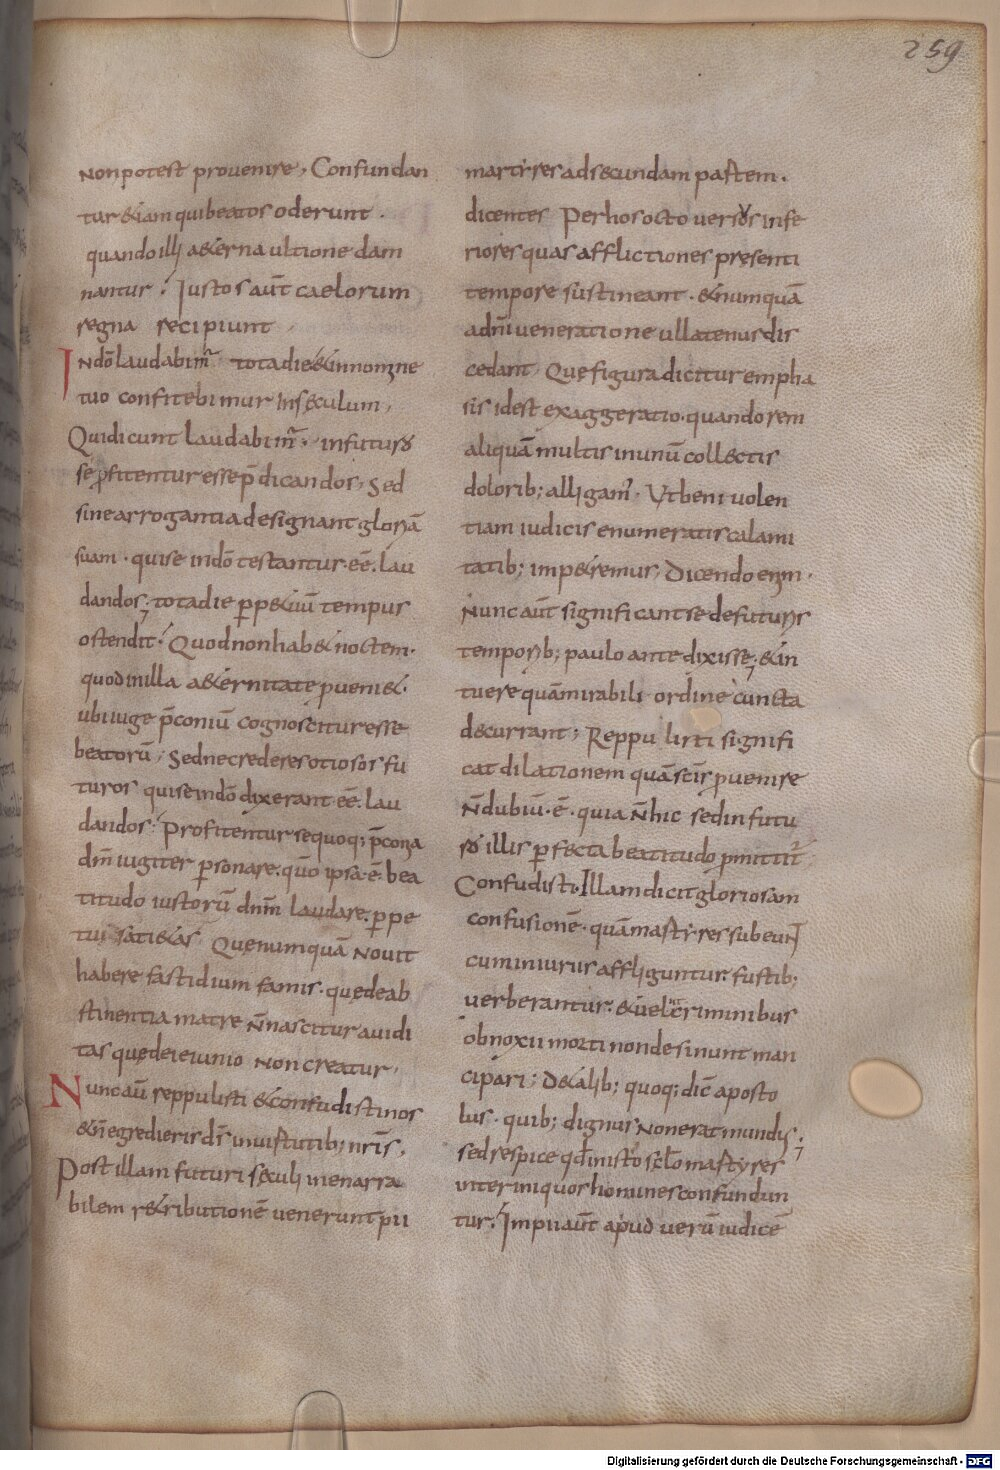 259
non potest provenire, Confundan
tur &iam qui beatos oderunt.
quando illi a&erna ultione dam
nantur. Iustos aūt caelorum
regna recipiunt.
In dō laudabimr̄ tota die & in nomine
tuo confitebimur in sęculum,
Qui dicunt laudabimr̄. in futuro
se ꝓfitentur esse p̄dicandos, Sed
sine arrogantia designant gloriā
suam. qui se in dō testantur eē lau
dandos; tota die ꝑp&uū tempus
ostendit. Quod non hab& noctem.
quod in illa a&ernitate ꝓueni&.
ubi iuge p̄coniū cognoscitur esse
beatorū, Sed ne crederes otiosos fu
turos qui se in dō dixerant eē lau
dandos. Profitentur se quoq; p̄conia
dn̄i iugiter ꝑsonare. quō ipsa ē bea
titudo iustorū dn̄m laudare. ꝑpe
tui sati&as Quę numquā novit
habere fastidium famis. quę de ab
stinentia matre n̄ nascitur auidi
tas quę de ieiunio non creatur,
Nunc aū reppulisti & confudisti nos
& n̄ egredieris d̄s in uirtutib; nr̄is,
Post illam futuri sęculi inenarra
bilem r&ributionē uenerunt pii
martyres ad secundam partem.
dicentes Per hos octo uersos infe
riores quas afflictiones pręsenti
tempore sustineant. & numquā
a dn̄i ueneratione ullatenus dis
cedant, Quę figura dicitur empha
sis id est exaggeratio. quando rem
aliquā multis in unū collectis
dolorib; alligam̄. Ut beniuolen
tiam iudicis enumeratis calami
tatib; imp&remus, Dicendo enim.
Nunc aūt significant se de futuris
temporib; paulo ante dixisse; & in
tuere quā mirabili ordine cuncta
decurrant; Reppulisti signifi
cat dilationem quā sc̄is ꝓuenire
n̄ dubiū ē. quia n̄ hic sed in futu
ro illis ꝑfecta beatitudo ꝓmittit̄,
Confudisti. Illam dicit gloriosam
confusionē. quā martyres subeunt
cum iniuriis affliguntur. fustib;
uerberantur. & uel c̄ criminibus
obnoxii morti non desinunt man
cipari; De talib; quoq; dic̄ aposto
lus. quib; dignus non erat mundus;
sed respice qđ in isto sc̄lo martyres
inter iniquos homines confundun
tur. Impii aūt apud uerū iudicē
Digitalisierung gefördert durch die Deutsche Forschungsgemeinschaft - DFG